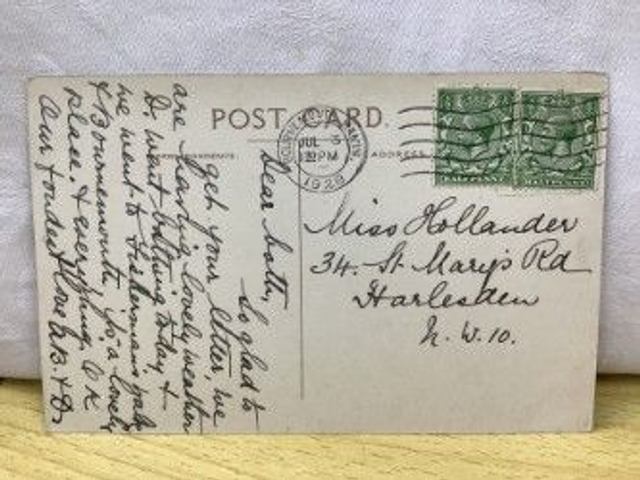 POST CARD.
ADDRESS
JUL 5
PM
1928
Dear Lotti,
So glad to
get your letter, we
are having lovely weather
D. went bathing today, &
we went to Fishermans Walk
& Bournemouth is a lovely
place. & everything O K
Our fondest love B. & D.
Miss Hollander
34. St Mary's Rd
Harlesden
N.W.10.